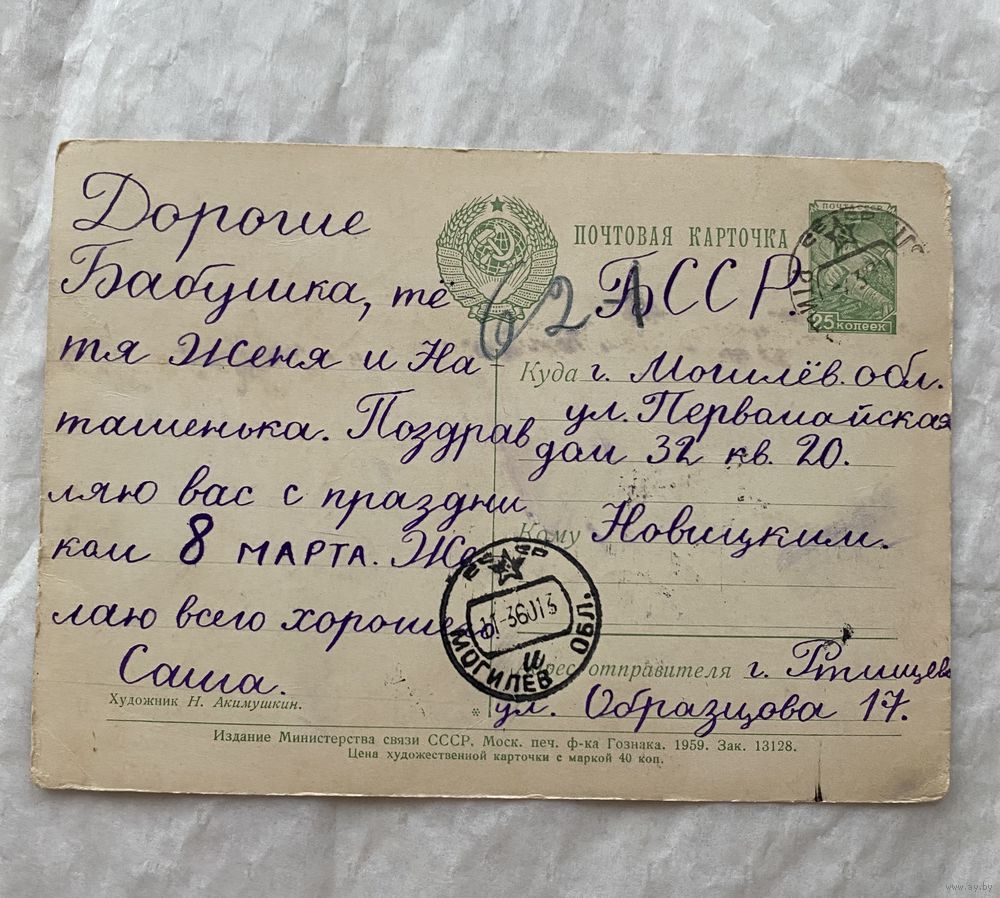 Дорогие
Бабушка, тё
тя Женя и На-
ташенька. Поздрав
ляю вас с праздни
ком 8 МАРТА. Же
лаю всего хороше
Саша.
Художник Н. Акимушкин.
ПОЧТОВАЯ КАРТОЧКА
ПОЧТА СССР
25 КОПЕЕК
621
БССР
Куда г. Могилёв. обл.
ул. Первомайская
дом 32 кв. 20.
Кому Новицким.
МОГИЛЕВ ОБЛ.
и
Адрес отправителя г. Ртищево
ул. Образцова 17.
Издание Министерства связи СССР. Моск. печ. ф-ка Гознака. 1959. Зак. 13128.
Цена художественной карточки с маркой 40 коп.
www.ay.by